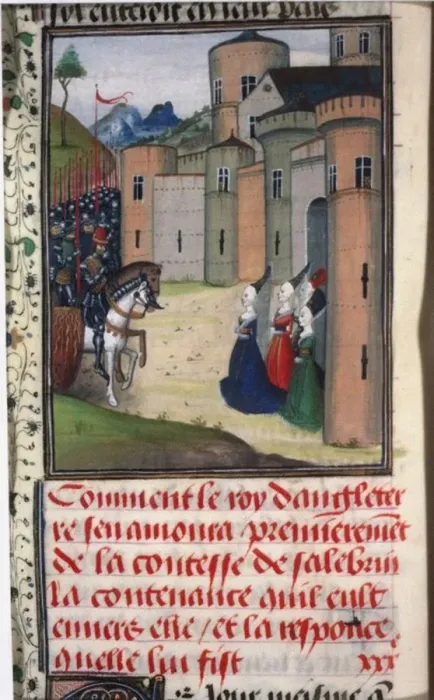 et entrerent en leur pays
Comment le roy dangleter
re sen amoura premieremẽt
de la contesse de salebrin
la contenance quil eult
enuers elle / et la responce
quelle lui fist xxx